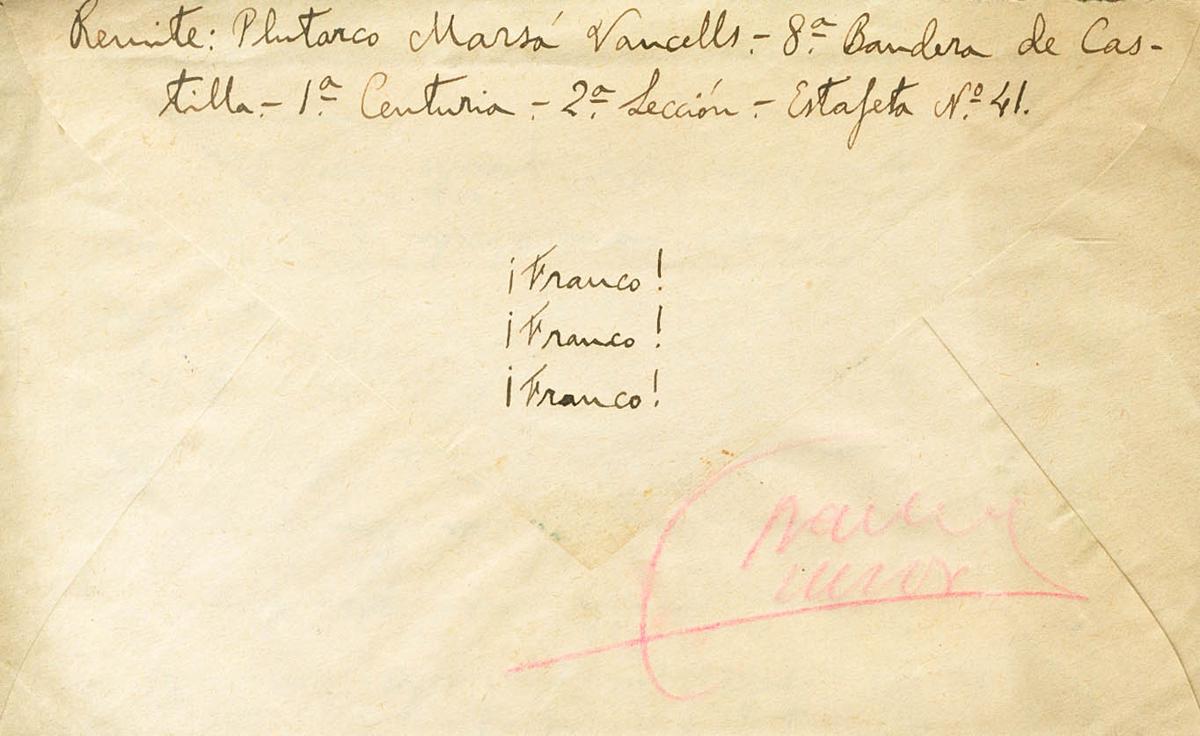 Remite: Plutarco Marsá Vancells.- 8ª Bandera de Cas-
tilla.- 1ª Centuria - 2ª Sección.- Estafeta Nº 41.
¡Franco!
¡Franco!
¡Franco!